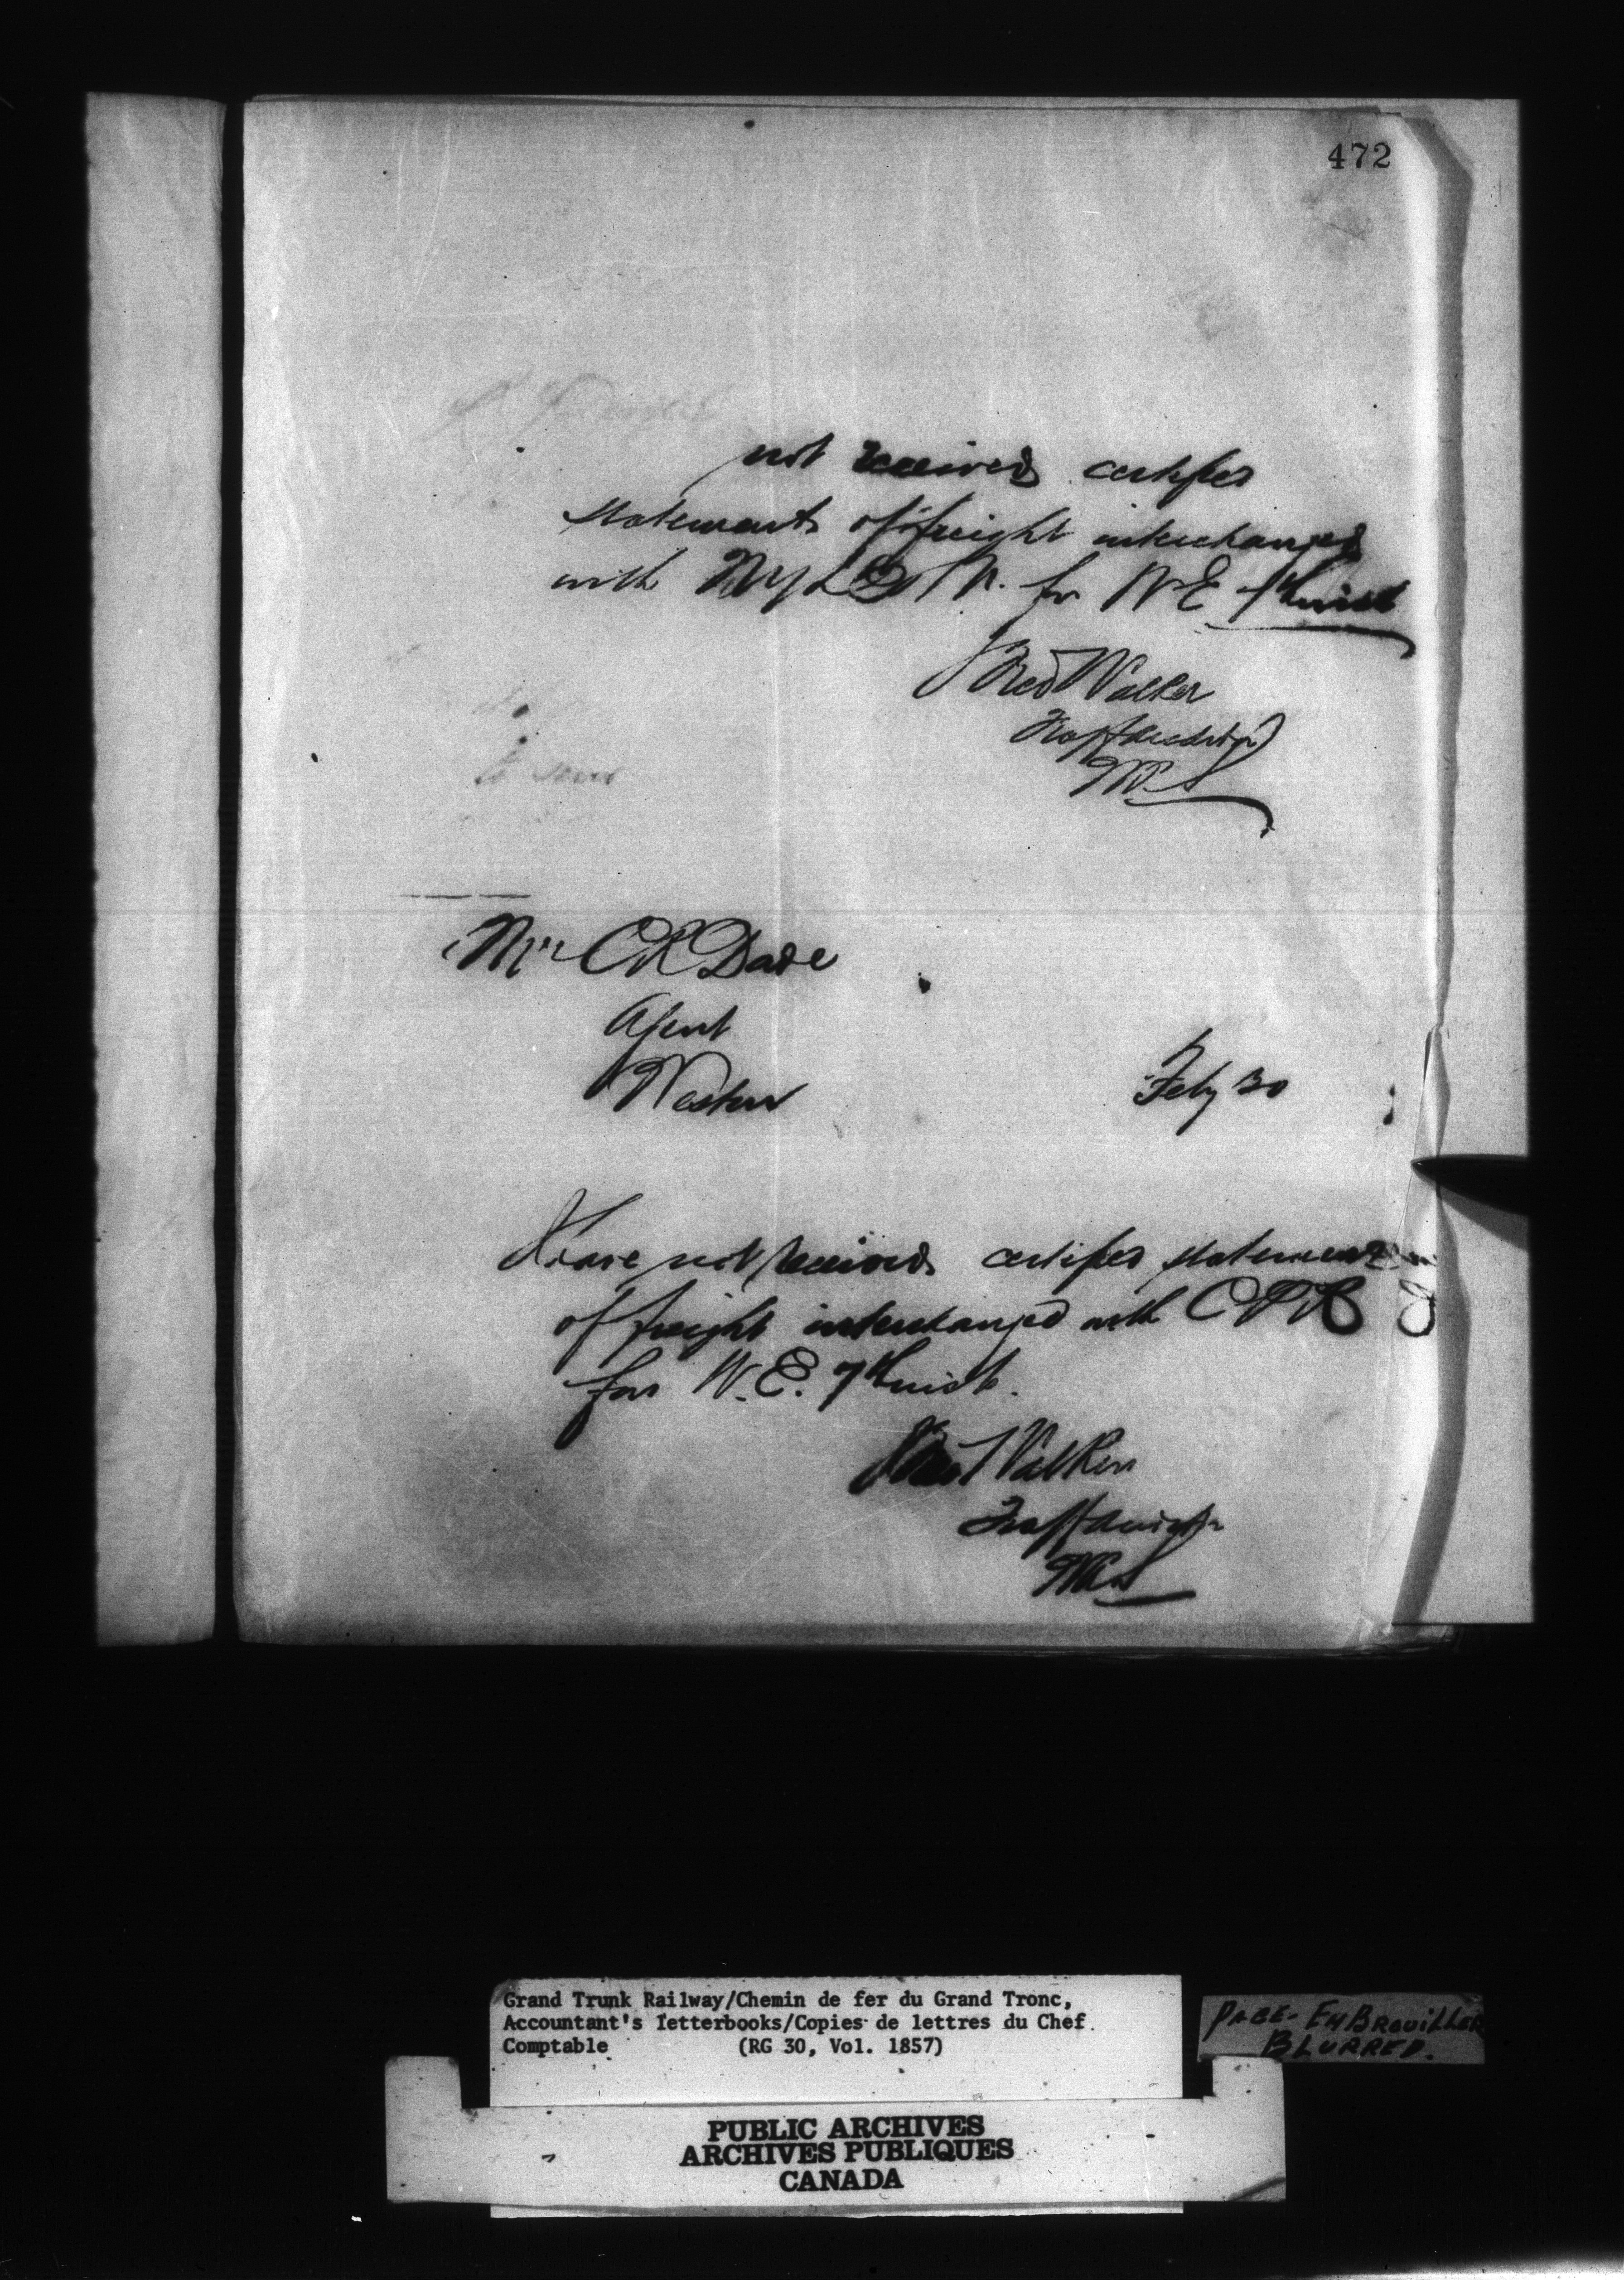 472
not received certified
statements of freight interchanged
with for W E 7th inst
Fred Walker
Mr C R Dade
Agent
Weston
Feby 20
Have not received certified statement
of freight interchanged with C P R
for W. E. 7th inst.
Fred Walker
Grand Trunk Railway/Chemin de fer du Grand Tronc,
Accountant's letterbooks/Copies de lettres du Chef
Comptable (RG 30, Vol. 1857)
PAGE - EMBROUILLER
BLURRED.
PUBLIC ARCHIVES
ARCHIVES PUBLIQUES
CANADA